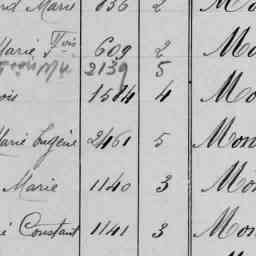 Marie 636 2 Mo
Marie Fois 609 2 Mo
2139 5
ois 1514 4 Mo
Marie Eugène 2461 5 Mon
Marie 1140 3 Mon
é Constant 1141 3 Mon